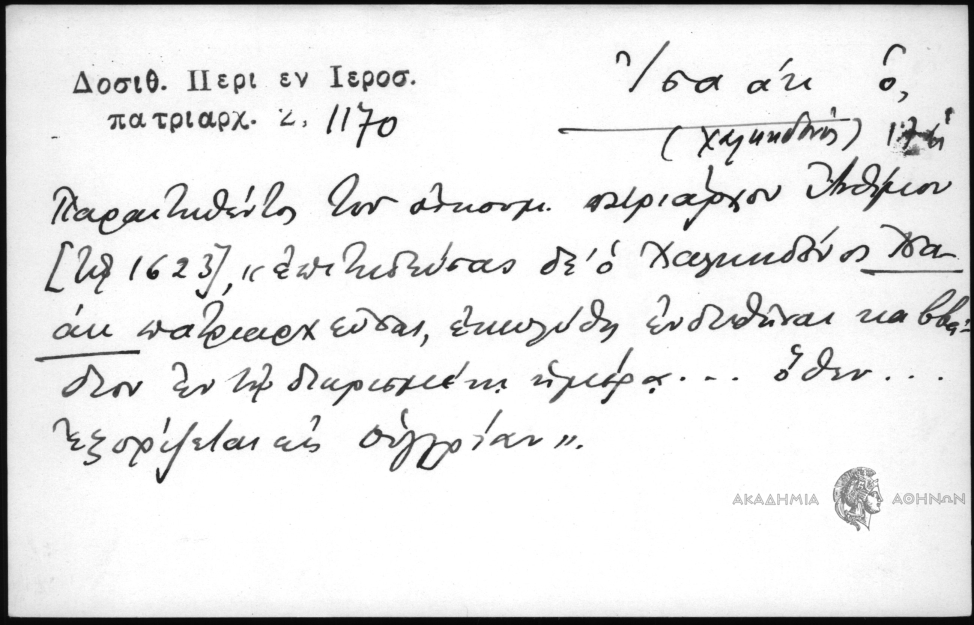 Δοσιθ. Περι εν Ιεροσ.
πατριαρχ. 2, 1170
Ἰσαάκ ὁ,
(Χαλκηδόνος)
Παραιτηθέντος τοῦ οἰκουμ. πατριάρχου Ἀνθίμου
[τῷ 1623], «ἐπιτηδεύσας δέ ὁ Χαλκηδόνος Ἰσα-
άκ πατριαρχεῦσαι, ἐκωλύθη ἐνδυθῆναι καββά-
διον ἐν τῇ διωρισμένῃ ἡμέρᾳ... ὅθεν...
ἐξορίζεται εἰς Οὐγγρίαν».
ΑΚΑΔΗΜΙΑ ΑΘΗΝΩΝ